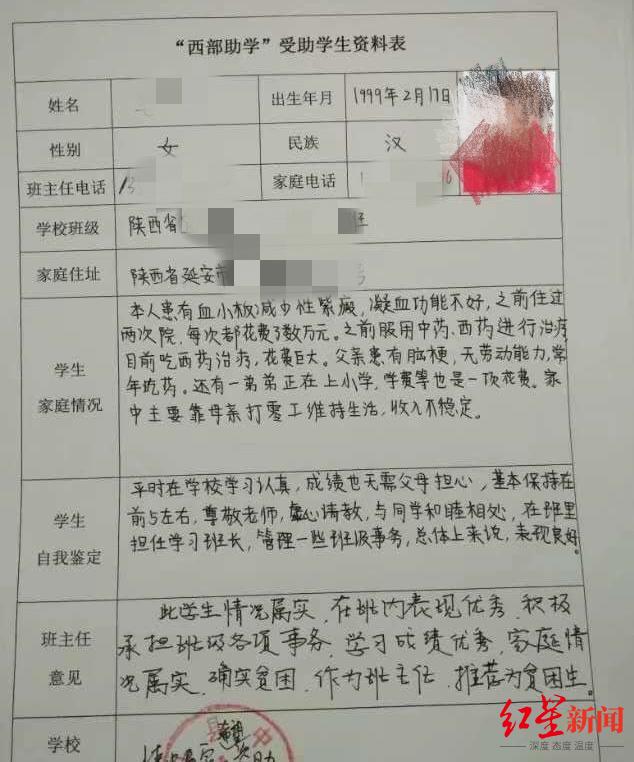 “西部助学”受助学生资料表
姓名 出生年月 1999年2月17日
性别 女 民族 汉
班主任电话 13 家庭电话 1 6
学校班级 陕西省 班
家庭住址 陕西省延安市
本人患有血小板减少性紫癜,凝血功能不好,之前住过
两次院,每次都花费了数万元。之前服用中药、西药进行治疗
目前吃西药治疗,花费巨大。父亲患有脑梗,无劳动能力,常
年吃药。还有一弟弟正在上小学,学费等也是一项花费。家
中主要靠母亲打零工维持生活,收入不稳定。
学生
家庭情况
平时在学校学习认真,成绩也无需父母担心,基本保持在
前5左右,尊敬老师,虚心请教,与同学和睦相处,在班里
担任学习班长,管理一些班级事务,总体上来说,表现良好。
学生
自我鉴定
此学生情况属实,在班内表现优秀,积极
承担班级各项事务,学习成绩优秀,家庭情
况属实,确实贫困,作为班主任,推荐为贫困生。
班主任
意见
学校
县 中
情况属实 资助
红星新闻
深度 态度 温度